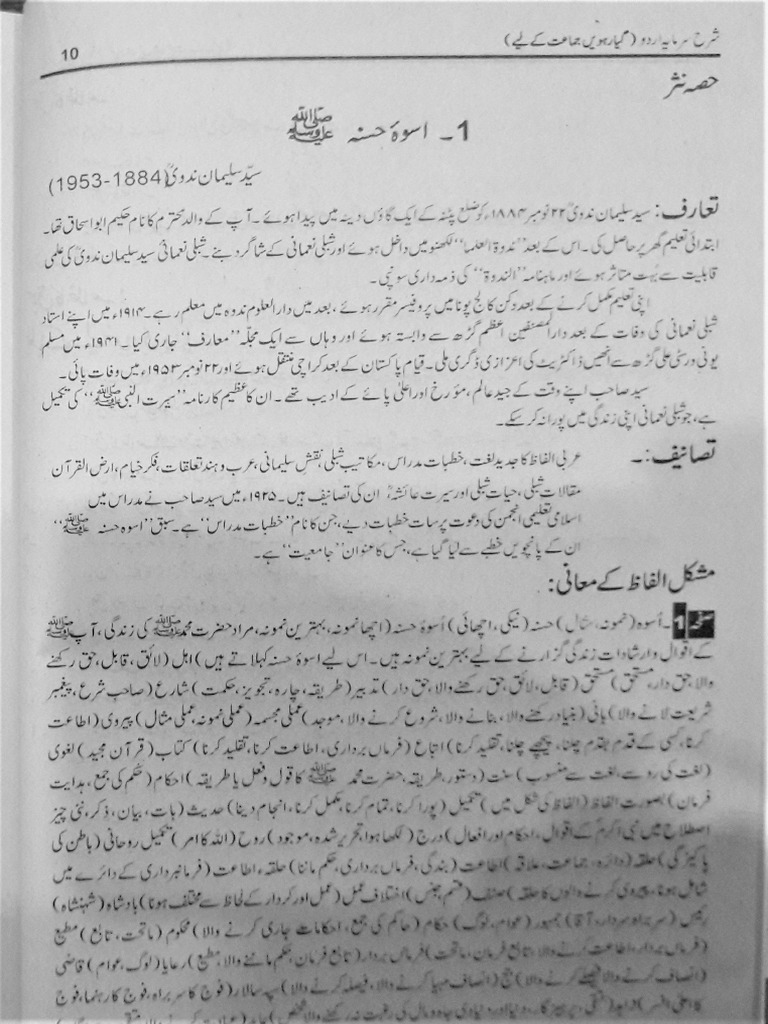 شرح سرمایہ اردو (گیارھویں جماعت کے لیے)
10
حصہ نثر
1۔ اسوۂ حسنہ ﷺ
سیّد سلیمان ندویؒ (1884-1953)
تعارف: سید سلیمان ندویؒ ۲۲ نومبر ۱۸۸۴ء کو ضلع پٹنہ کے ایک گاؤں دیسنہ میں پیدا ہوئے۔ آپ کے والد محترم کا نام حکیم ابو اسحاق تھا۔
ابتدائی تعلیم گھر پر حاصل کی۔ اس کے بعد "ندوۃ العلما" لکھنو میں داخل ہوئے اور شبلی نعمانی کے شاگرد بنے۔ شبلی نعمانی سید سلیمان ندویؒ کی علمی
قابلیت سے بہت متاثر ہوئے اور ماہنامہ "الندوۃ" کی ذمہ داری سونپی۔
اپنی تعلیم مکمل کرنے کے بعد دکن کالج پونا میں پروفیسر مقرر ہوئے، بعد میں دارالعلوم ندوہ میں معلم رہے۔ ۱۹۱۴ء میں اپنے استاد
شبلی نعمانی کی وفات کے بعد دارالمصنفین اعظم گڑھ سے وابستہ ہوئے اور وہاں سے ایک مجلّہ "معارف" جاری کیا۔ ۱۹۴۱ء میں مسلم
یونی ورسٹی علی گڑھ سے انھیں ڈاکٹریٹ کی اعزازی ڈگری ملی۔ قیام پاکستان کے بعد کراچی منتقل ہوئے اور ۲۲ نومبر ۱۹۵۳ء میں وفات پائی۔
سید صاحب اپنے وقت کے جید عالم، مؤرخ اور اعلیٰ پائے کے ادیب تھے۔ ان کا عظیم کارنامہ "سیرت النبی ﷺ" کی تکمیل
ہے، جو شبلی نعمانی اپنی زندگی میں پورا نہ کر سکے۔
تصانیف:۔ عربی الفاظ کا جدید لغت، خطبات مدراس، مکاتیب شبلی، نقش سلیمانی، عرب و ہند تعلقات، فکر خیام، ارض القرآن
مقالات شبلی، حیات شبلی اور سیرت عائشہؓ ان کی تصانیف ہیں۔ ۱۹۲۵ء میں سید صاحب نے مدراس میں
اسلامی تعلیمی انجمن کی دعوت پر سات خطبات دیے، جن کا نام "خطبات مدراس" ہے۔ سبق "اسوہ حسنہ ﷺ"
ان کے پانچویں خطبے سے لیا گیا ہے، جس کا عنوان "جامعیت" ہے۔
مشکل الفاظ کے معانی:
صفحہ 1۔ اُسوہ (نمونہ، مثال) حسنہ (نیکی، اچھائی) اُسوۂ حسنہ (اچھا نمونہ، بہترین نمونہ، مراد حضرت محمد ﷺ کی زندگی، آپ ﷺ
کے اقوال و ارشادات زندگی گزارنے کے لیے بہترین نمونہ ہیں۔ اس لیے اسوۂ حسنہ کہلاتے ہیں) اہل (لائق، قابل، حق رکھنے
والا، حق دار، مستحق) مستحق (قابل، لائق، حق رکھنے والا، حق دار) تدبیر (طریقہ، چارہ، تجویز، حکمت) شارع (صاحب شرع، پیغمبر
شریعت لانے والا) بانی (بنیاد رکھنے والا، بنانے والا، شروع کرنے والا، موجد) عملی مجسمہ (عملی نمونہ، عملی مثال) پیروی (اطاعت
کرنا، کسی کے قدم بقدم چلنا، پیچھے چلنا، تقلید کرنا) اتباع (فرماں برداری، اطاعت کرنا، تقلید کرنا) کتاب (قرآن مجید) لغوی
(لغت کی رو سے، لغت سے منسوب) سنت (دستور، طریقہ، حضرت محمد ﷺ کا قول و فعل یا طریقہ) احکام (حکم کی جمع، ہدایت
فرمان) بصورت الفاظ (الفاظ کی شکل میں) تکمیل (پورا کرنا، تمام کرنا، مکمل کرنا، انجام دینا) حدیث (بات، بیان، ذکر، نئی چیز
اصطلاح میں نبی اکرمؐ کے اقوال، احکام اور افعال) درج (لکھا ہوا، تحریر شدہ، موجود) روح (اللہ کا امر) تکمیل روحانی (باطن کی
پاکیزگی) حلقہ (دائرہ، جماعت، علاقہ) اطاعت (بندگی، فرماں برداری، حکم ماننا) حلقہء اطاعت (فرمانبرداری کے دائرے میں
شامل ہونا، پیروی کرنے والوں کا حلقہ) صنف (قسم، جنس) اختلاف عمل (عمل اور کردار کے لحاظ سے مختلف ہونا) بادشاہ (شہنشاہ)
رئیس (سربراہ، سردار، آقا) جمہور (عوام، لوگ) حکام (حاکم کی جمع، احکامات جاری کرنے والا) محکوم (ماتحت، تابع) مطیع
(فرماں بردار، اطاعت کرنے والا، تابع فرمان، ماتحت) فرماں بردار (تابع فرمان، حکم ماننے والا، مطیع) رعایا (لوگ، عوام) قاضی
(انصاف کرنے والا، فیصلے کرنے والا) جج (انصاف مہیا کرنے والا، فیصلہ کرنے والا) سپہ سالار (فوج کا سربراہ، فوج کا رہنما، فوج
کا اعلیٰ افسر) زاہد (متقی، پرہیز گار، دنیا اور دنیاوی جاہ و مال کی رغبت نہ رکھنے والا شخص)